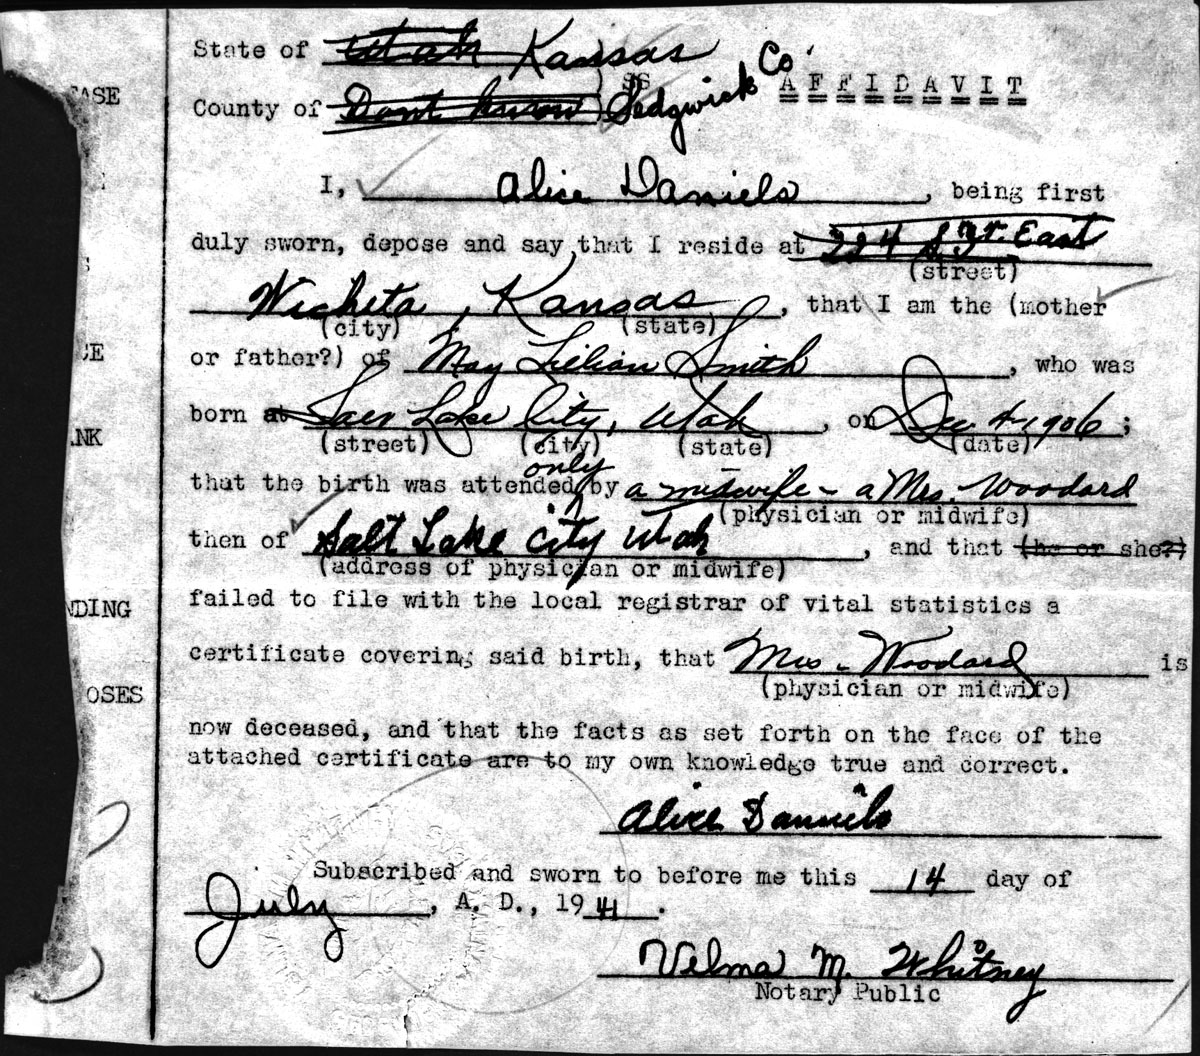 State of Utah Kansas
SS
Co
AFFIDAVIT
County of Dont know Sedgwick
I, Alice Daniels, being first
duly sworn, depose and say that I reside at 224 S. Gr. East
(street)
Wicheta, Kansas, that I am the (mother
(city) (state)
or father?) of May Lillian Smith, who was
born at Salt Lake City, Utah, on Dec 4-1906;
(street) (city) (state) (date)
only
that the birth was attended by a midwife - a Mrs. Woodard
(physician or midwife)
then of Salt Lake City Utah, and that (he or she?)
(address of physician or midwife)
failed to file with the local registrar of vital statistics a
certificate covering said birth, that Mrs. Woodard is
(physician or midwife)
now deceased, and that the facts as set forth on the face of the
attached certificate are to my own knowledge true and correct.
Alice Daniels
Subscribed and sworn to before me this 14 day of
July, A. D., 1941.
Velma M. Whitney
Notary Public
EASE
CE
ANK
NDING
OSES